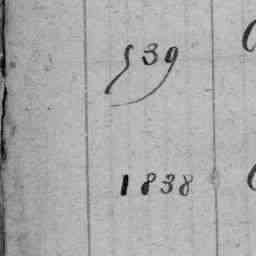 539
1838